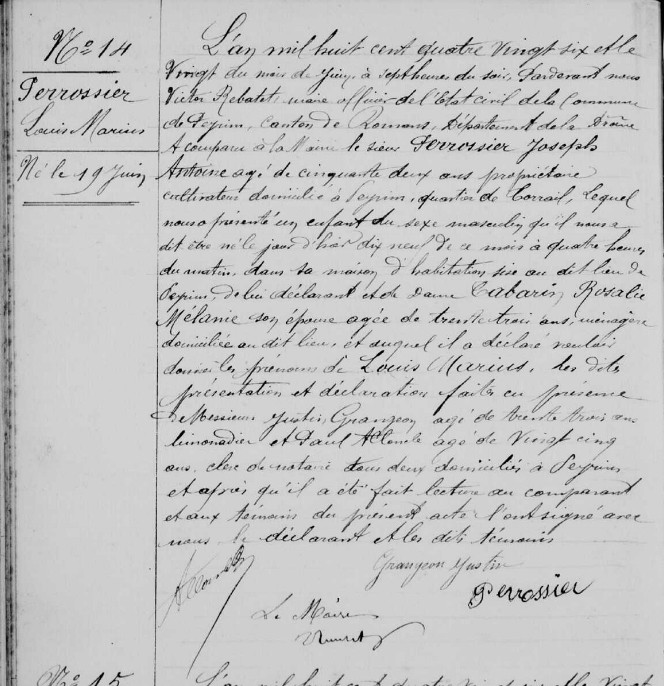 N° 14
Perrossier
Louis Marius
Né le 19 Juin
L'an mil huit cent quatre vingt six et le
Vingt du mois de Juin, à sept heures du soir, Pardevant nous
Victor Rebatet, maire officier de l'Etat civil de la Commune
de Peyrins, Canton de Romans, Département de la Drôme
A comparu à la Mairie le sieur Perrossier Joseph
Antoine agé de cinquante deux ans propriétaire
cultivateur domicilié à Peyrins, quartier de, Lequel
nous a présenté un enfant du sexe masculin qu'il nous a
dit être né le jour d'hier dix neuf de ce mois à quatre heures
du matin, dans sa maison d'habitation, sise au dit lieu de
Peyrins, de lui déclarant et de Dame Tabarin Rosalie
Mélanie son épouse agée de trente trois ans, ménagère
domiciliée au dit lieu, et auquel il a déclaré vouloir
donner les prénoms de Louis Marius, les dites
présentation et déclaration faites en présence
de Messieurs Justin Grangeon agé de trente trois ans
limonadier et Paul agé de Vingt cinq
ans, clerc de notaire tous deux domiciliés à Peyrins
et après qu'il a été fait lecture au comparant
et aux témoins du présent acte l'ont signé avec
nous le déclarant et les dits témoins
Grangeon Justin
Perrossier
Le Maire
N° 15
L'an mil huit cent quatre vingt six et le Vingt